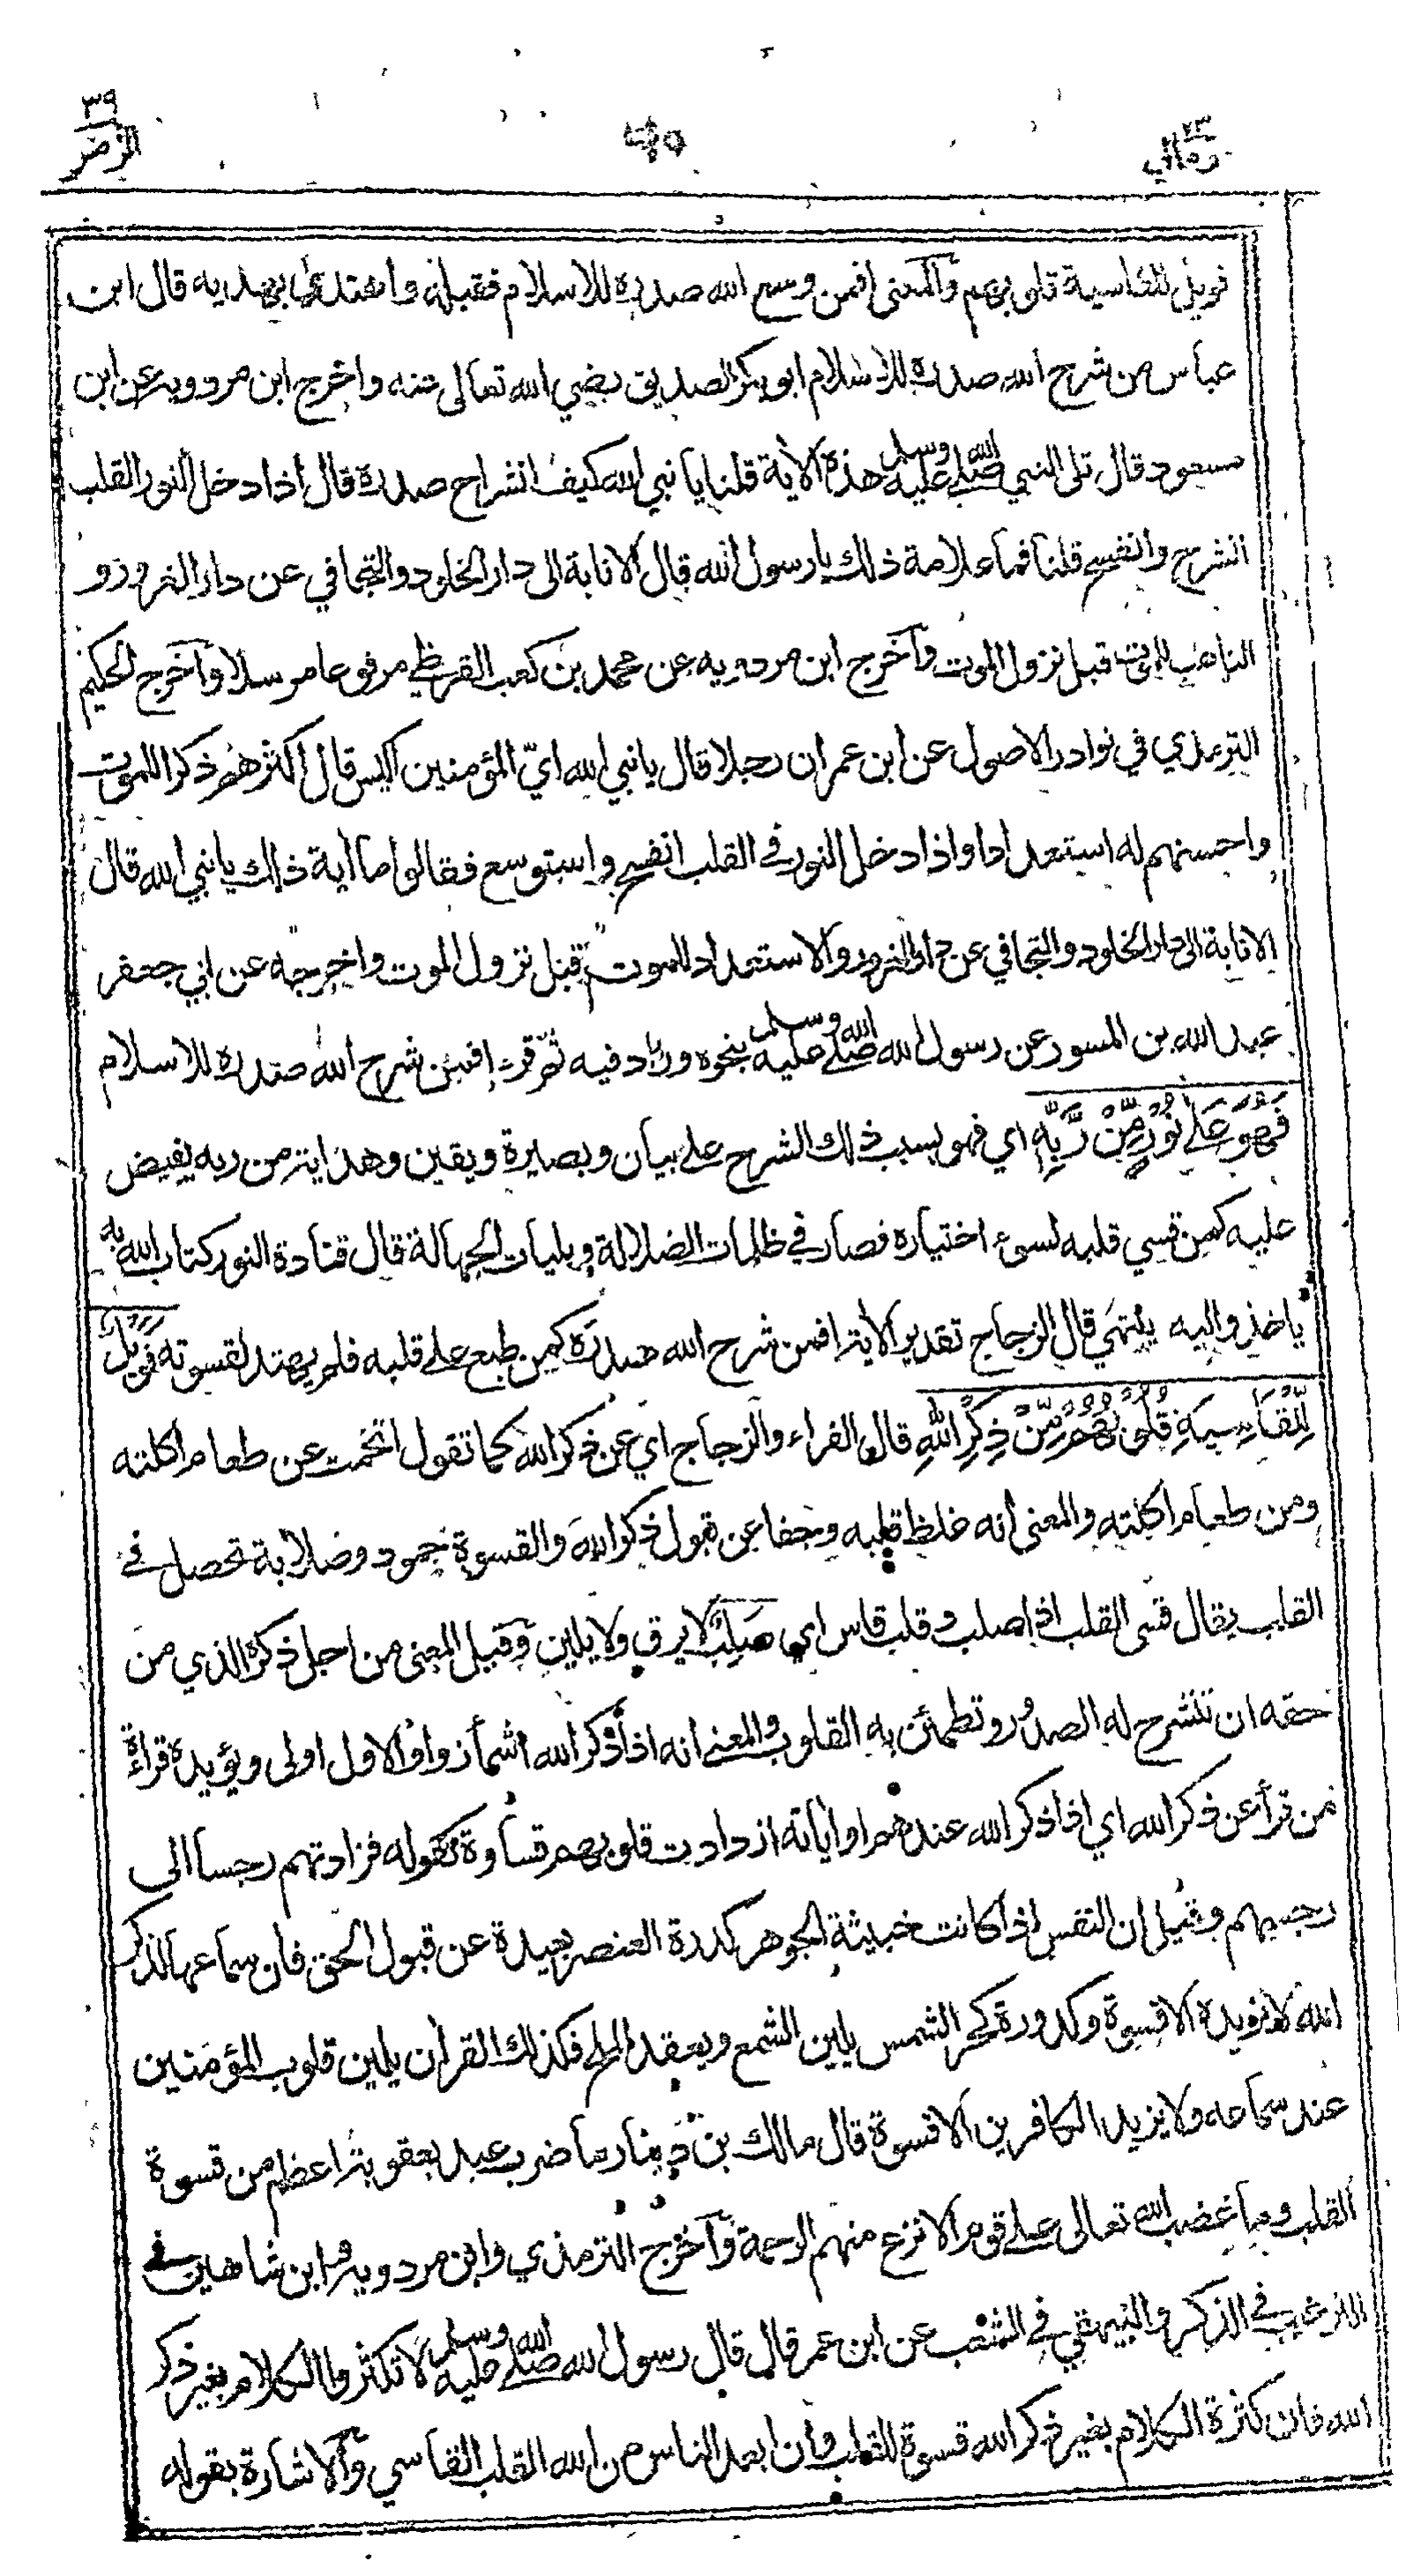 ٣٩
الزمر
٢٣
ومالي
فويل للقاسية قلوبهم والمعنى افمن وسع الله صدره للاسلام فقبله واهتدى بهديه قال ابن
عباس من شرح الله صدره للاسلام ابو بكر الصديق رضي الله تعالى عنه واخرج ابن مردويه عن ابن
مسعود قال تلى النبي صلى الله عليه وسلم هذه الآية قلنا يا نبي الله كيف انشراح صدره قال اذا دخل النور القلب
انشرح وانفسح قلنا فما علامة ذلك يا رسول الله قال الانابة الى دار الخلود والتجافي عن دار الغرور و
التاهب للموت قبل نزول الموت وأخرج ابن مردويه عن محمد بن كعب القرظي مرفوعا مرسلا وأخرج الحكيم
الترمذي في نوادر الاصول عن ابن عمر ان رجلا قال يا نبي الله ايّ المؤمنين اكيس قال اكثرهم ذكرا للموت
واحسنهم له استعدادا واذا دخل النور في القلب انفسح واستوسع فقالوا ما آية ذلك يا نبي الله قال
الانابة الى دار الخلود والتجافي عن دار الغرور والاستعداد للموت قبل نزول الموت واخرجه عن ابي جعفر
عبد الله بن المسور عن رسول الله صلى الله عليه وسلم بنحوه وزاد فيه ثم قرء افمن شرح الله صدره للاسلام
فَهُوَ عَلٰى نُوْرٍ مِّنْ رَّبِّهٖ اي فهو بسبب ذلك الشرح على بيان وبصيرة ويقين وهداية من ربه يفيض
عليه كمن قسي قلبه لسوء اختياره فصار في ظلمات الضلالة وبليات الجهالة قال قتادة النور كتاب الله به
ياخذ واليه ينتهي قال الزجاج تقدير الآية افمن شرح الله صدره كمن طبع على قلبه فلم يهتد لقسوته فَوَيْلٌ
لِّلْقَاسِيَةِ قُلُوْبُهُمْ مِّنْ ذِكْرِ اللّٰهِ قال الفراء والزجاج اي عن ذكر الله كما تقول اتخمت عن طعام اكلته
ومن طعام اكلته والمعنى انه غلظ قلبه وجفا عن قبول ذكر الله والقسوة جمود وصلابة تحصل في
القلب يقال قسى القلب اذا صلب وقلب قاس اي صلب لا يرق ولا يلين وقيل المعنى من اجل ذكره الذي من
حقه ان تنشرح له الصدور وتطمئن به القلوب والمعنى انه اذا ذكر الله اشمأزوا والاول اولى ويؤيده قراءة
من قرأ عن ذكر الله اي اذا ذكر الله عندهم او آياته ازدادت قلوبهم قساوة كقوله فزادتهم رجسا الى
رجسهم وقيل ان النفس اذا كانت خبيثة الجوهر كدرة العنصر بعيدة عن قبول الحق فان سماعها لذكر
الله لا تزيده الا قسوة وكدورة كحر الشمس يلين الشمع ويعقد الملح فكذلك القرآن يلين قلوب المؤمنين
عند سماعه ولا يزيد الكافرين الا قسوة قال مالك بن دينار ما ضرب عبد بعقوبة اعظم من قسوة
القلب وما غضب الله تعالى على قوم الا نزع منهم الرحمة وأخرج الترمذي وابن مردويه وابن شاهين في
الترغيب في الذكر والبيهقي في الشعب عن ابن عمر قال قال رسول الله صلى الله عليه وسلم لا تكثروا الكلام بغير ذكر
الله فان كثرة الكلام بغير ذكر الله قسوة للقلب وان ابعد الناس من الله القلب القاسي والاشارة بقوله